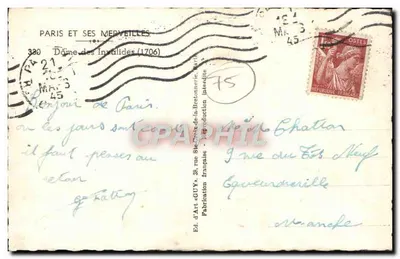 PARIS ET SES MERVEILLES
330 Dôme des Invalides (1706)
21
MARS
45
21
MARS
45
POSTES
75
Bonjour de Paris.
les jours sont
il faut penser au
retour
Chatron
9 rue du Neuf
Equeurdreville
Manche
Ed. d'Art "GUY", 39, rue Ste-Croix-de-la-Bretonnerie, Paris
Fabrication française - Reproduction interdite
CPArama.com